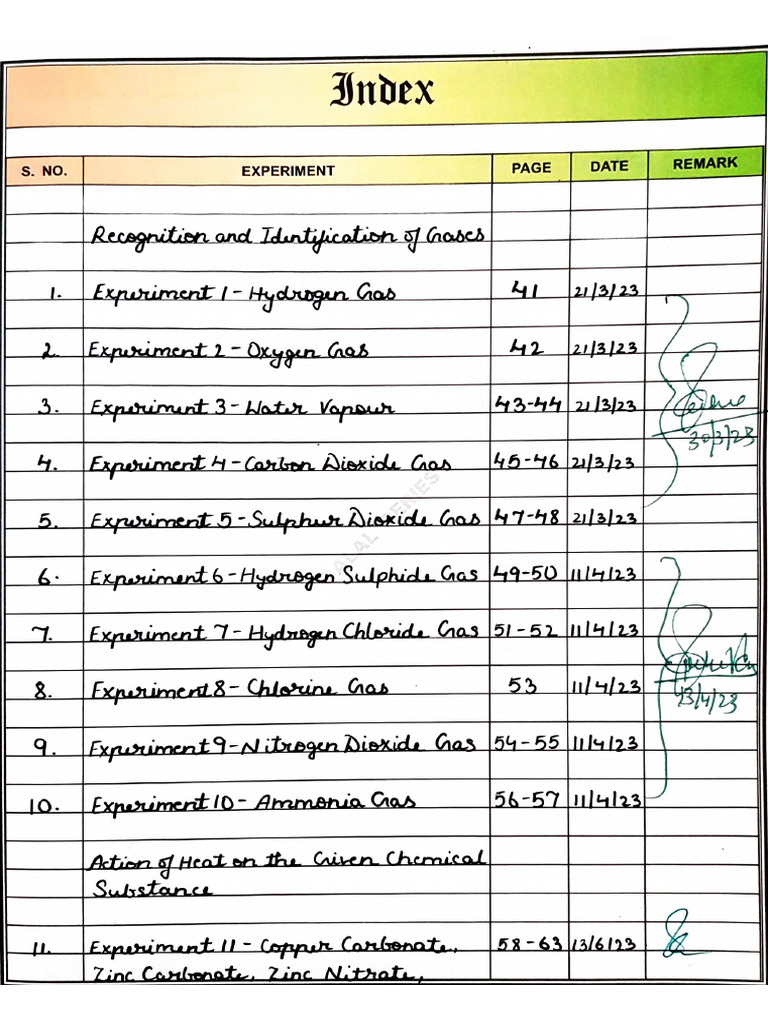 Index
S. NO. EXPERIMENT PAGE DATE REMARK
Recognition and Identification of Gases
1. Experiment 1 - Hydrogen Gas 41 21/3/23
2. Experiment 2 - Oxygen Gas 42 21/3/23
3. Experiment 3 - Water Vapour 43-44 21/3/23
30/3/23
4. Experiment 4 - Carbon Dioxide Gas 45-46 21/3/23
5. Experiment 5 - Sulphur Dioxide Gas 47-48 21/3/23
6. Experiment 6 - Hydrogen Sulphide Gas 49-50 11/4/23
7. Experiment 7 - Hydrogen Chloride Gas 51-52 11/4/23
8. Experiment 8 - Chlorine Gas 53 11/4/23
13/4/23
9. Experiment 9 - Nitrogen Dioxide Gas 54-55 11/4/23
10. Experiment 10 - Ammonia Gas 56-57 11/4/23
Action of Heat on the Given Chemical
Substance
11. Experiment 11 - Copper Carbonate, 58-63 13/6/23
Zinc Carbonate, Zinc Nitrate,